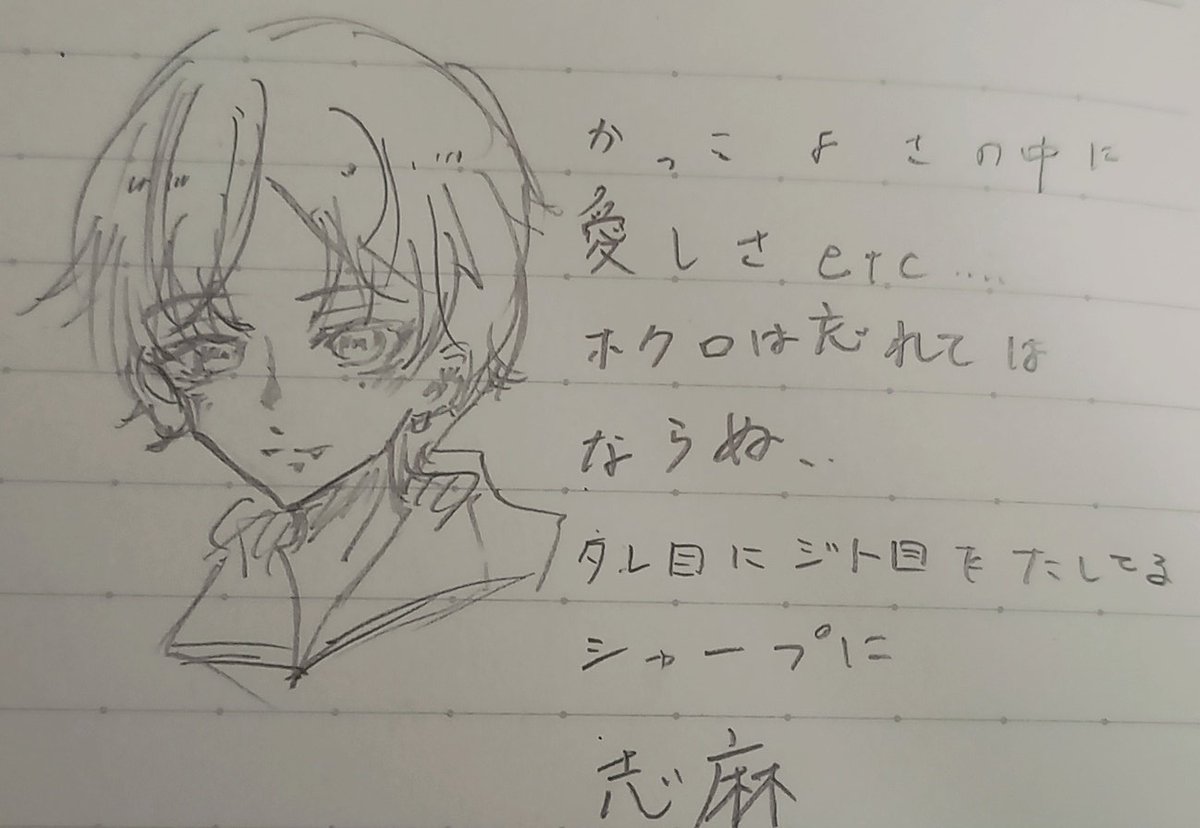 かっこよさの中に
愛しさetc....
ホクロは忘れては
ならぬ、、
タレ目にジト目をたしてる
シャープに
志麻